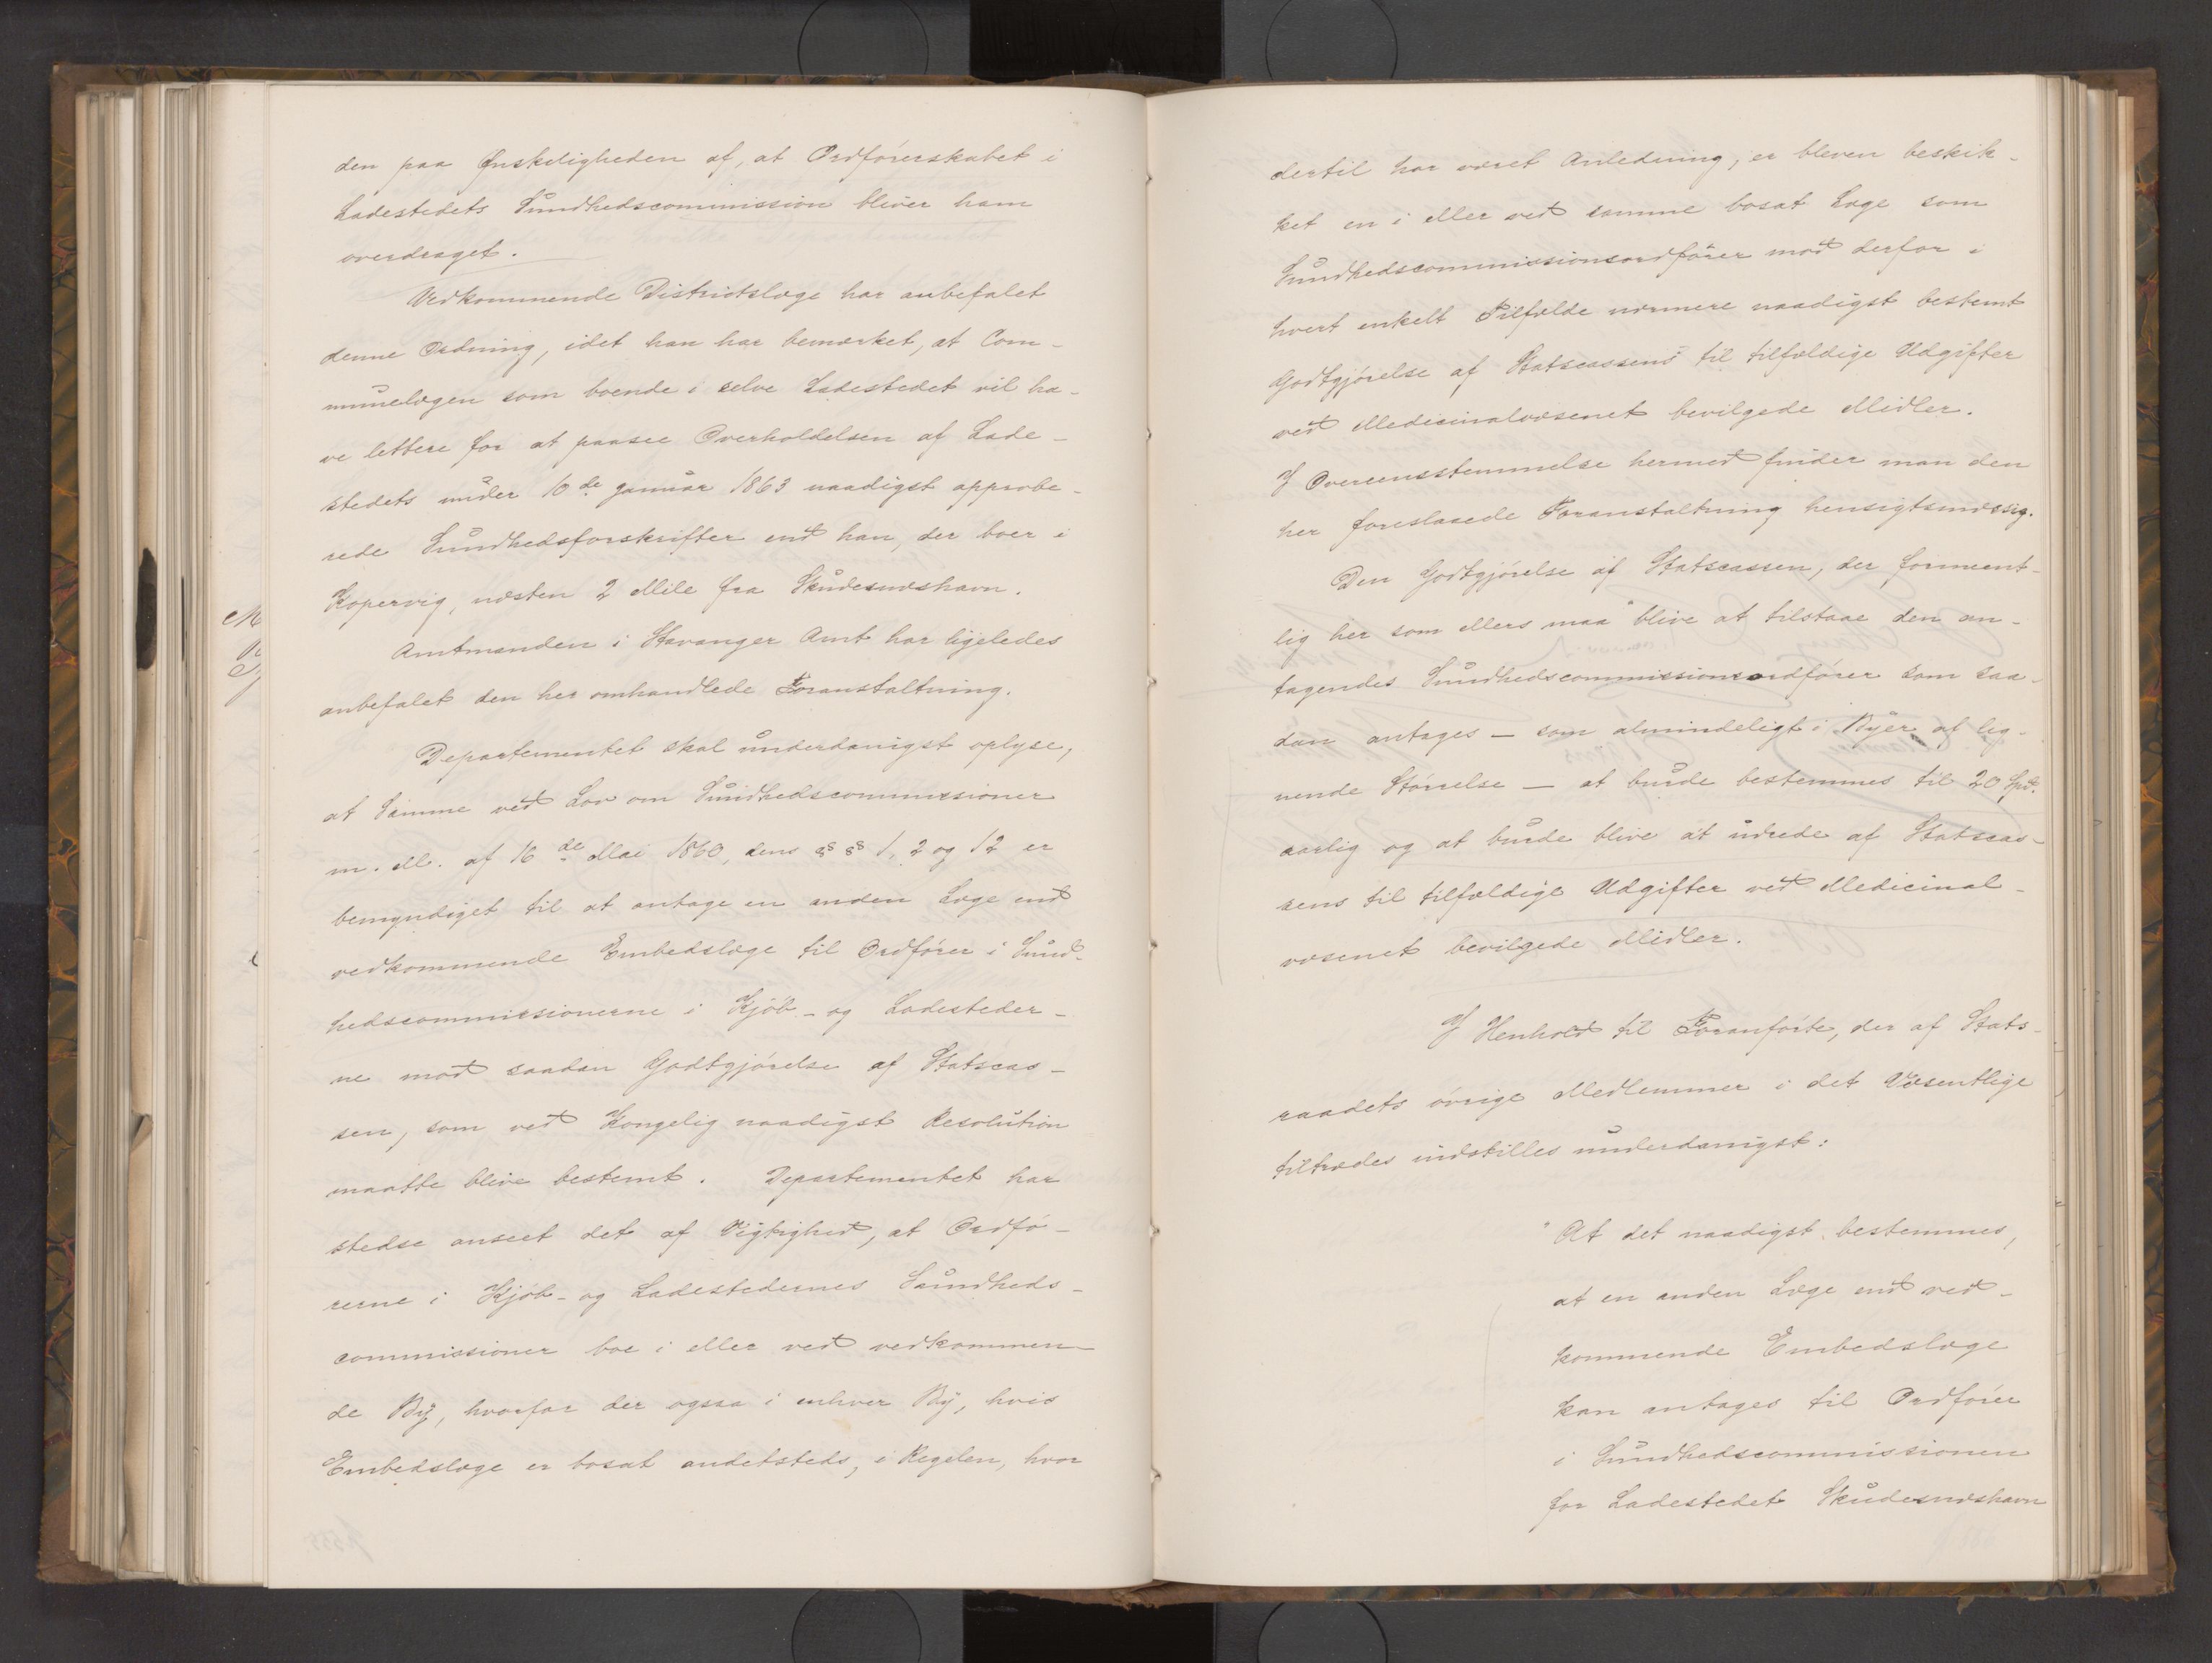 den paa Ønskeligheden af, at Ordførerskabet i
Ladestedets Sundhedscommission bliver ham
overdraget.
Vedkommende Districtslæge har anbefalet
denne Ordning, idet han har bemærket, at Com-
munelægen som boende i selve Ladestedet vil ha-
ve lettere for at paasee Overholdelsen af Lade-
stedets under 10de Januar 1863 naadigst approbe-
rede Sundhedsforskrifter end han, der boer i
Kopervig, næsten 2 Mile fra Skudesnæshavn.
Amtmanden i Stavanger Amt har ligeledes
anbefalet den her omhandlede Foranstaltning.
Departementet skal underdanigst oplyse,
at Samme ved Lov om Sundhedscommissioner
m. M. af 16de Mai 1860, dens §§ 1, 2 og 12 er
bemyndiget til at antage en anden Læge end
vedkommende Embedslæge til Ordfører i Sund-
hedscommissionerne i Kjøb- og Ladesteder-
ne mod saadan Godtgjørelse af Statscas-
sen, som ved Kongelig naadigst Resolution
maatte blive bestemt. Departementet har
stedse anseet det af Vigtighed, at Ordfø-
rerne i Kjøb- og Ladestedernes Sundheds-
commissioner boe i eller ved vedkommen-
de By, hvorfor der ogsaa i enhver By, hvis
Embedslæge er bosat andetsteds, i Regelen, hvor
dertil har været Anledning, er bleven beskik-
ket en i eller ved samme bosat Læge som
Sundhedscommissionsordfører mod derfor i
hvert enkelt Tilfælde nærmere naadigst bestemt
Godtgjørelse af Statscassens til tilfældige Udgifter
ved Medicinalvæsenet bevilgede Midler.
I Overeensstemmelse hermed finder man den
her foreslaaede Foranstaltning hensigtsmæssig.
Den Godtgjørelse af Statscassen, der formeent-
lig her som ellers maa blive at tilstaae den an-
tagendes Sundhedscommissionsordfører som saa-
dan antages — som almindeligt i Byer af lig-
nende Størrelse — at burde bestemmes til 20 Spd.
aarlig og at burde blive at udrede af Statscas-
sens til tilfældige Udgifter ved Medicinal-
væsenet bevilgede Midler.
I Henhold til Foranførte, der af Stats-
raadets øvrige Medlemmer i det Væsentlige
tiltrædes indstilles underdanigst:
"At det naadigst bestemmes,
at en anden Læge end ved-
kommende Embedslæge
kan antages til Ordfører
i Sundhedscommissionen
for Ladestedet Skudesnæshavn